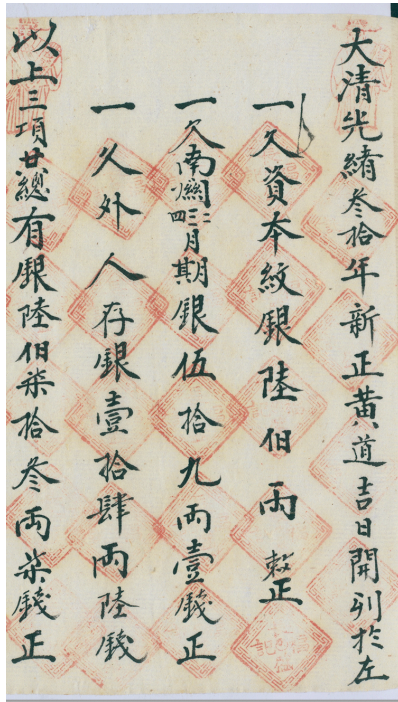 大清光緒叁拾年新正黄道吉日開列於左
一欠資本紋銀陸佰両敕正
一欠南 二三四月期銀伍拾九両壹錢正
一欠外人存銀壹拾肆両陸錢
以上三項廿總有銀陸佰柒拾叁両柒錢正